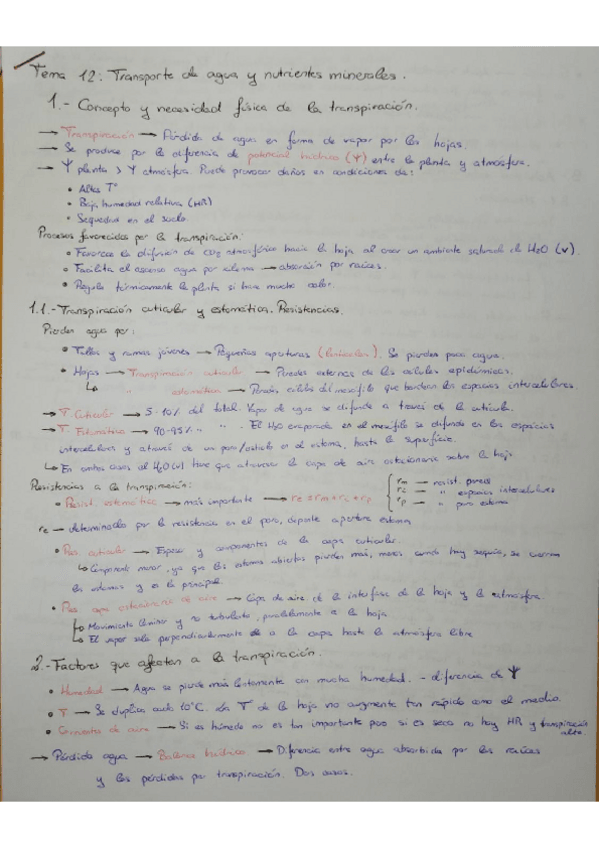 Tema 12: Transporte de agua y nutrientes minerales.
1.- Concepto y necesidad física de la transpiración.
→ Transpiración → Pérdida de agua en forma de vapor por las hojas.
→ Se produce por la diferencia de potencial hídrico (Ψ) entre la planta y atmósfera.
→ Ψ planta > Ψ atmósfera. Puede provocar daños en condiciones de:
• Altas Tº
• Baja humedad relativa (HR)
• Sequedad en el suelo.
Procesos favorecidos por la transpiración:
• Favorece la difusión de CO2 atmosférico hacia la hoja al crear un ambiente saturado de H2O (v).
• Facilita el ascenso agua por xilema → absorción por raíces.
• Regula térmicamente la planta si hace mucho calor.
1.1.- Transpiración cuticular y estomática. Resistencias.
Pierden agua por:
• Tallos y ramas jóvenes → Pequeñas aperturas (lenticelas). Se pierden poca agua.
• Hojas → Transpiración cuticular → Paredes externas de las células epidérmicas.
↳ " estomática → Paredes células del mesófilo que bordean los espacios intercelulares.
→ T. Cuticular → 5-10% del total. Vapor de agua se difunde a través de la cutícula.
→ T. Estomática → 90-95% " " . El H2O evaporada en el mesófilo se difunde en los espacios
intercelulares y a través de un poro/ostiolo en el estoma, hasta la superficie.
↳ En ambos casos el H2O(v) tiene que atravesar la capa de aire estacionaria sobre la hoja.
Resistencias a la transpiración:
• Resist. estomática → más importante → re = rm + rc + rp
rm → resist. pared
rc → " espacios intercelulares
rp → " poro estoma
re → determinada por la resistencia en el poro, depende apertura estoma
• Res. cuticular → Espesor y componentes de la capa cuticular.
↳ Componente menor, ya que los estomas abiertos pierden más, menos cuando hay sequía, se cierran
los estomas y es la principal.
• Res. capa estacionaria de aire → Capa de aire de la interfase de la hoja y la atmósfera.
↳ Movimiento laminar y no turbulento, paralelamente a la hoja
↳ El vapor sale perpendicularmente a la capa hasta la atmósfera libre
2.- Factores que afectan a la transpiración.
• Humedad → Agua se pierde más lentamente con mucha humedad. - diferencia de Ψ
• T → Se duplica cada 10°C. La T de la hoja no aumenta tan rápido como el medio.
• Corrientes de aire → Si es húmedo no es tan importante pero si es seco no hay HR y transpiración
alta.
→ Pérdida agua → Balance hídrico → Diferencia entre agua absorbida por las raíces
y las pérdidas por transpiración. Dos casos.